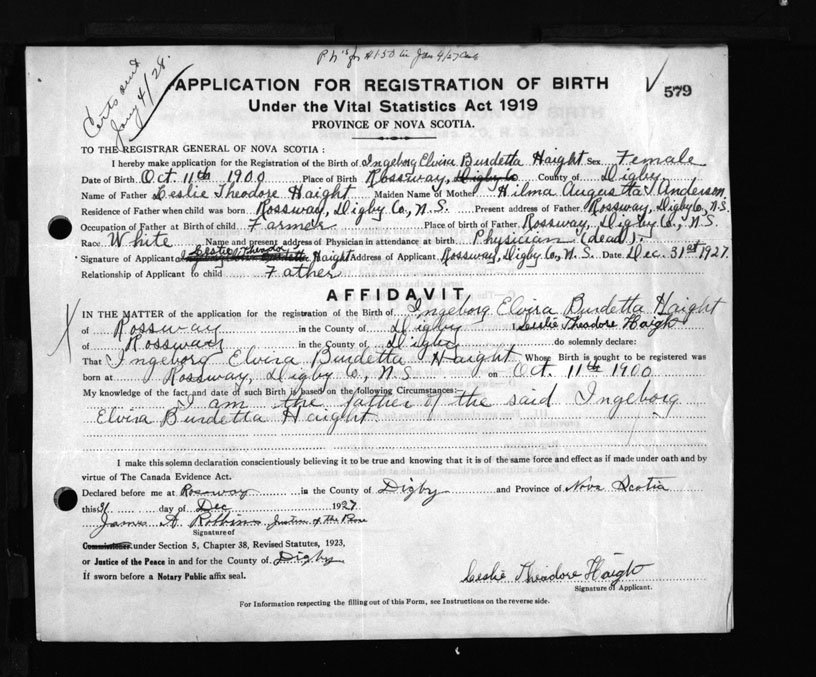 Pd for $1.50 in Jan 4/27
Certs sent
Jany 4/28.
APPLICATION FOR REGISTRATION OF BIRTH
579
Under the Vital Statistics Act 1919
PROVINCE OF NOVA SCOTIA.
TO THE REGISTRAR GENERAL OF NOVA SCOTIA:
I hereby make application for the Registration of the Birth of Ingeborg Elvira Burdetta Haight Sex Female
Date of Birth Oct. 11th 1900 Place of Birth Rossway, Digby Co County of Digby
Name of Father Leslie Theodore Haight Maiden Name of Mother Hilma Augustta Anderson
Residence of Father when child was born Rossway, Digby Co., N.S. Present address of Father Rossway, Digby Co., N.S.
Occupation of Father at Birth of child Farmer Place of birth of Father Rossway, Digby Co., N.S.
Race White Name and present address of Physician in attendance at birth Physician (dead).
Leslie Theodor
Signature of Applicant Haight Address of Applicant Rossway, Digby Co., N.S. Date Dec. 31st 1927.
Relationship of Applicant to child Father
AFFIDAVIT
IN THE MATTER of the application for the registration of the Birth of Ingeborg Elvira Burdetta Haight
of Rossway in the County of Digby I Leslie Theodore Haight
of Rossway in the County of Digby do solemnly declare:
That Ingeborg Elvira Burdetta Haight Whose Birth is sought to be registered was
born at Rossway, Digby Co., N.S. on Oct. 11th 1900
My knowledge of the fact and date of such Birth is based on the following Circumstances:—
I am the father of the said Ingeborg
Elvira Burdetta Haight.
I make this solemn declaration conscientiously believing it to be true and knowing that it is of the same force and effect as if made under oath and by
virtue of The Canada Evidence Act.
Declared before me at Rossway in the County of Digby and Province of Nova Scotia
this 31 day of Dec 1927
James A Robbins Justice of the Peace
Signature of
Commissioner under Section 5, Chapter 38, Revised Statutes, 1923,
or Justice of the Peace in and for the County of Digby
If sworn before a Notary Public affix seal.
Leslie Theodore Haight
Signature of Applicant.
For Information respecting the filling out of this Form, see Instructions on the reverse side.